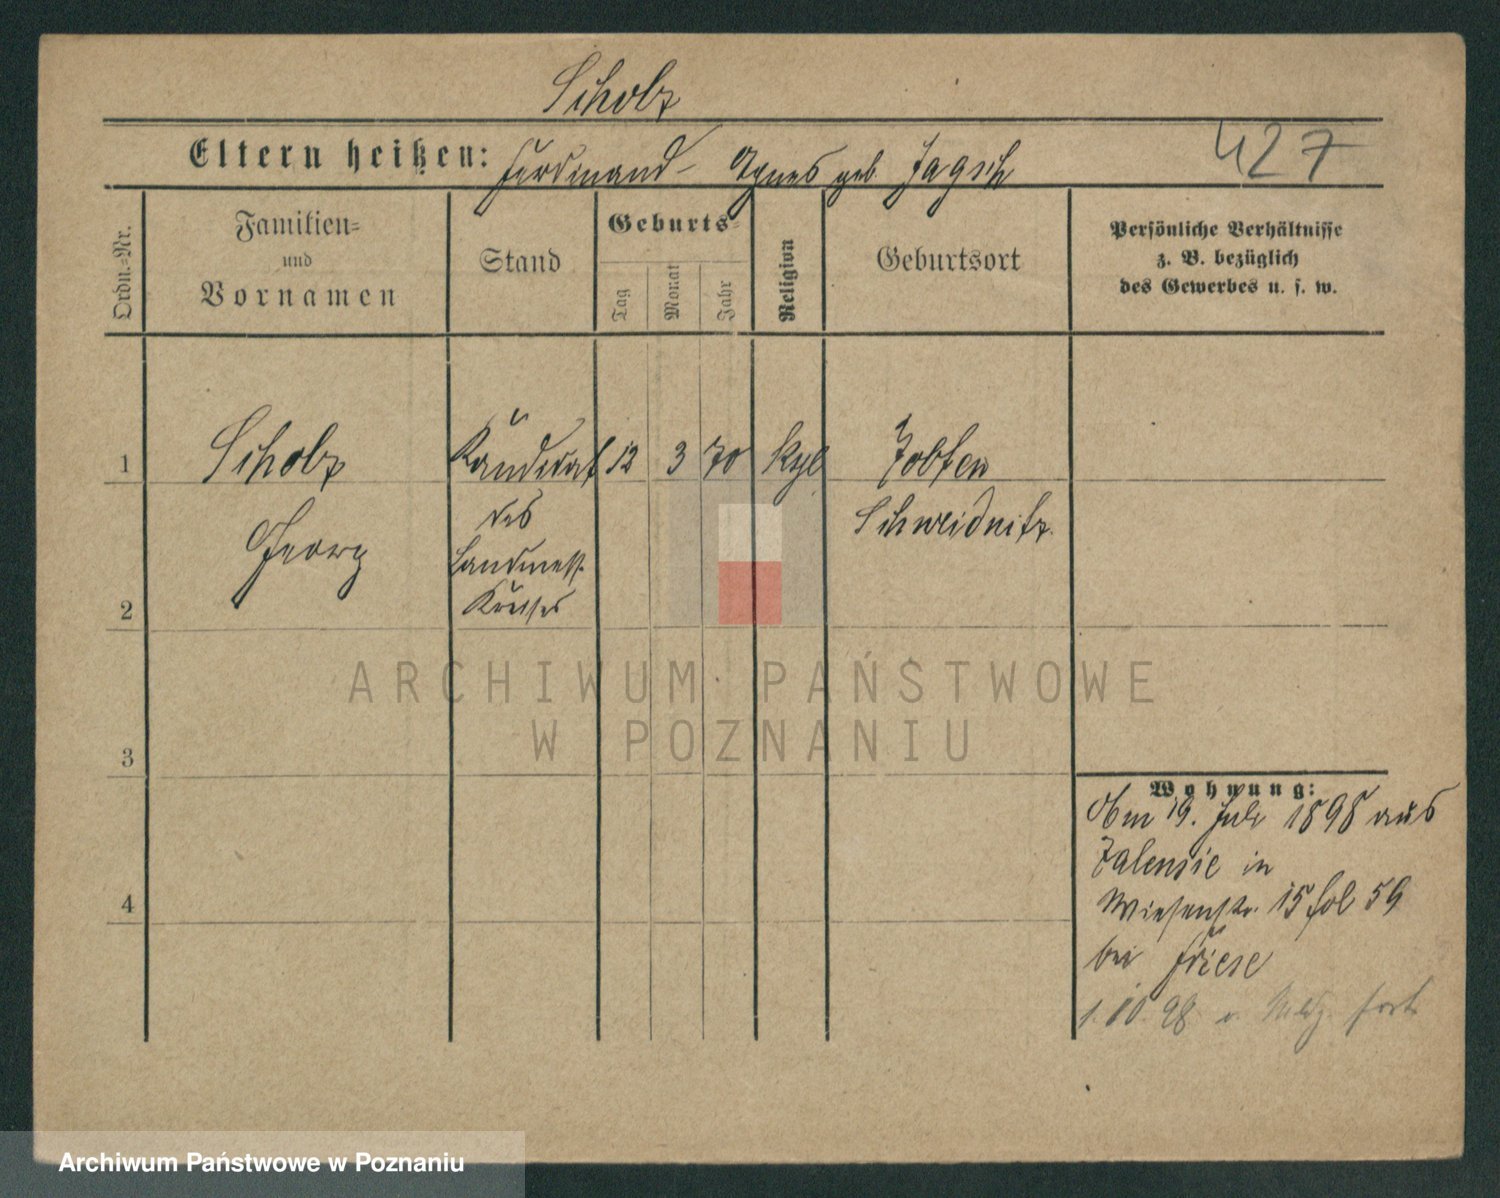 Scholz
Eltern heißen: Ferdinand - Agnes geb. Jagsch
427
Ordn.=Nr.
Familien=
und
Vornamen
Stand
Geburts=
Tag
Monat
Jahr
Religion
Geburtsort
Persönliche Verhältnisse
z. B. bezüglich
des Gewerbes u. s. w.
1
Scholz
Kandidat
12
3
70
Zobten
Georg
des
Landmess.
Schweidnitz
2
3
4
Wohnung:
19. Juli 1898 aus
in
Wiesenstr. 15 fol 59
bei Friese
1.10.98
ARCHIWUM PAŃSTWOWE
W POZNANIU
Archiwum Państwowe w Poznaniu